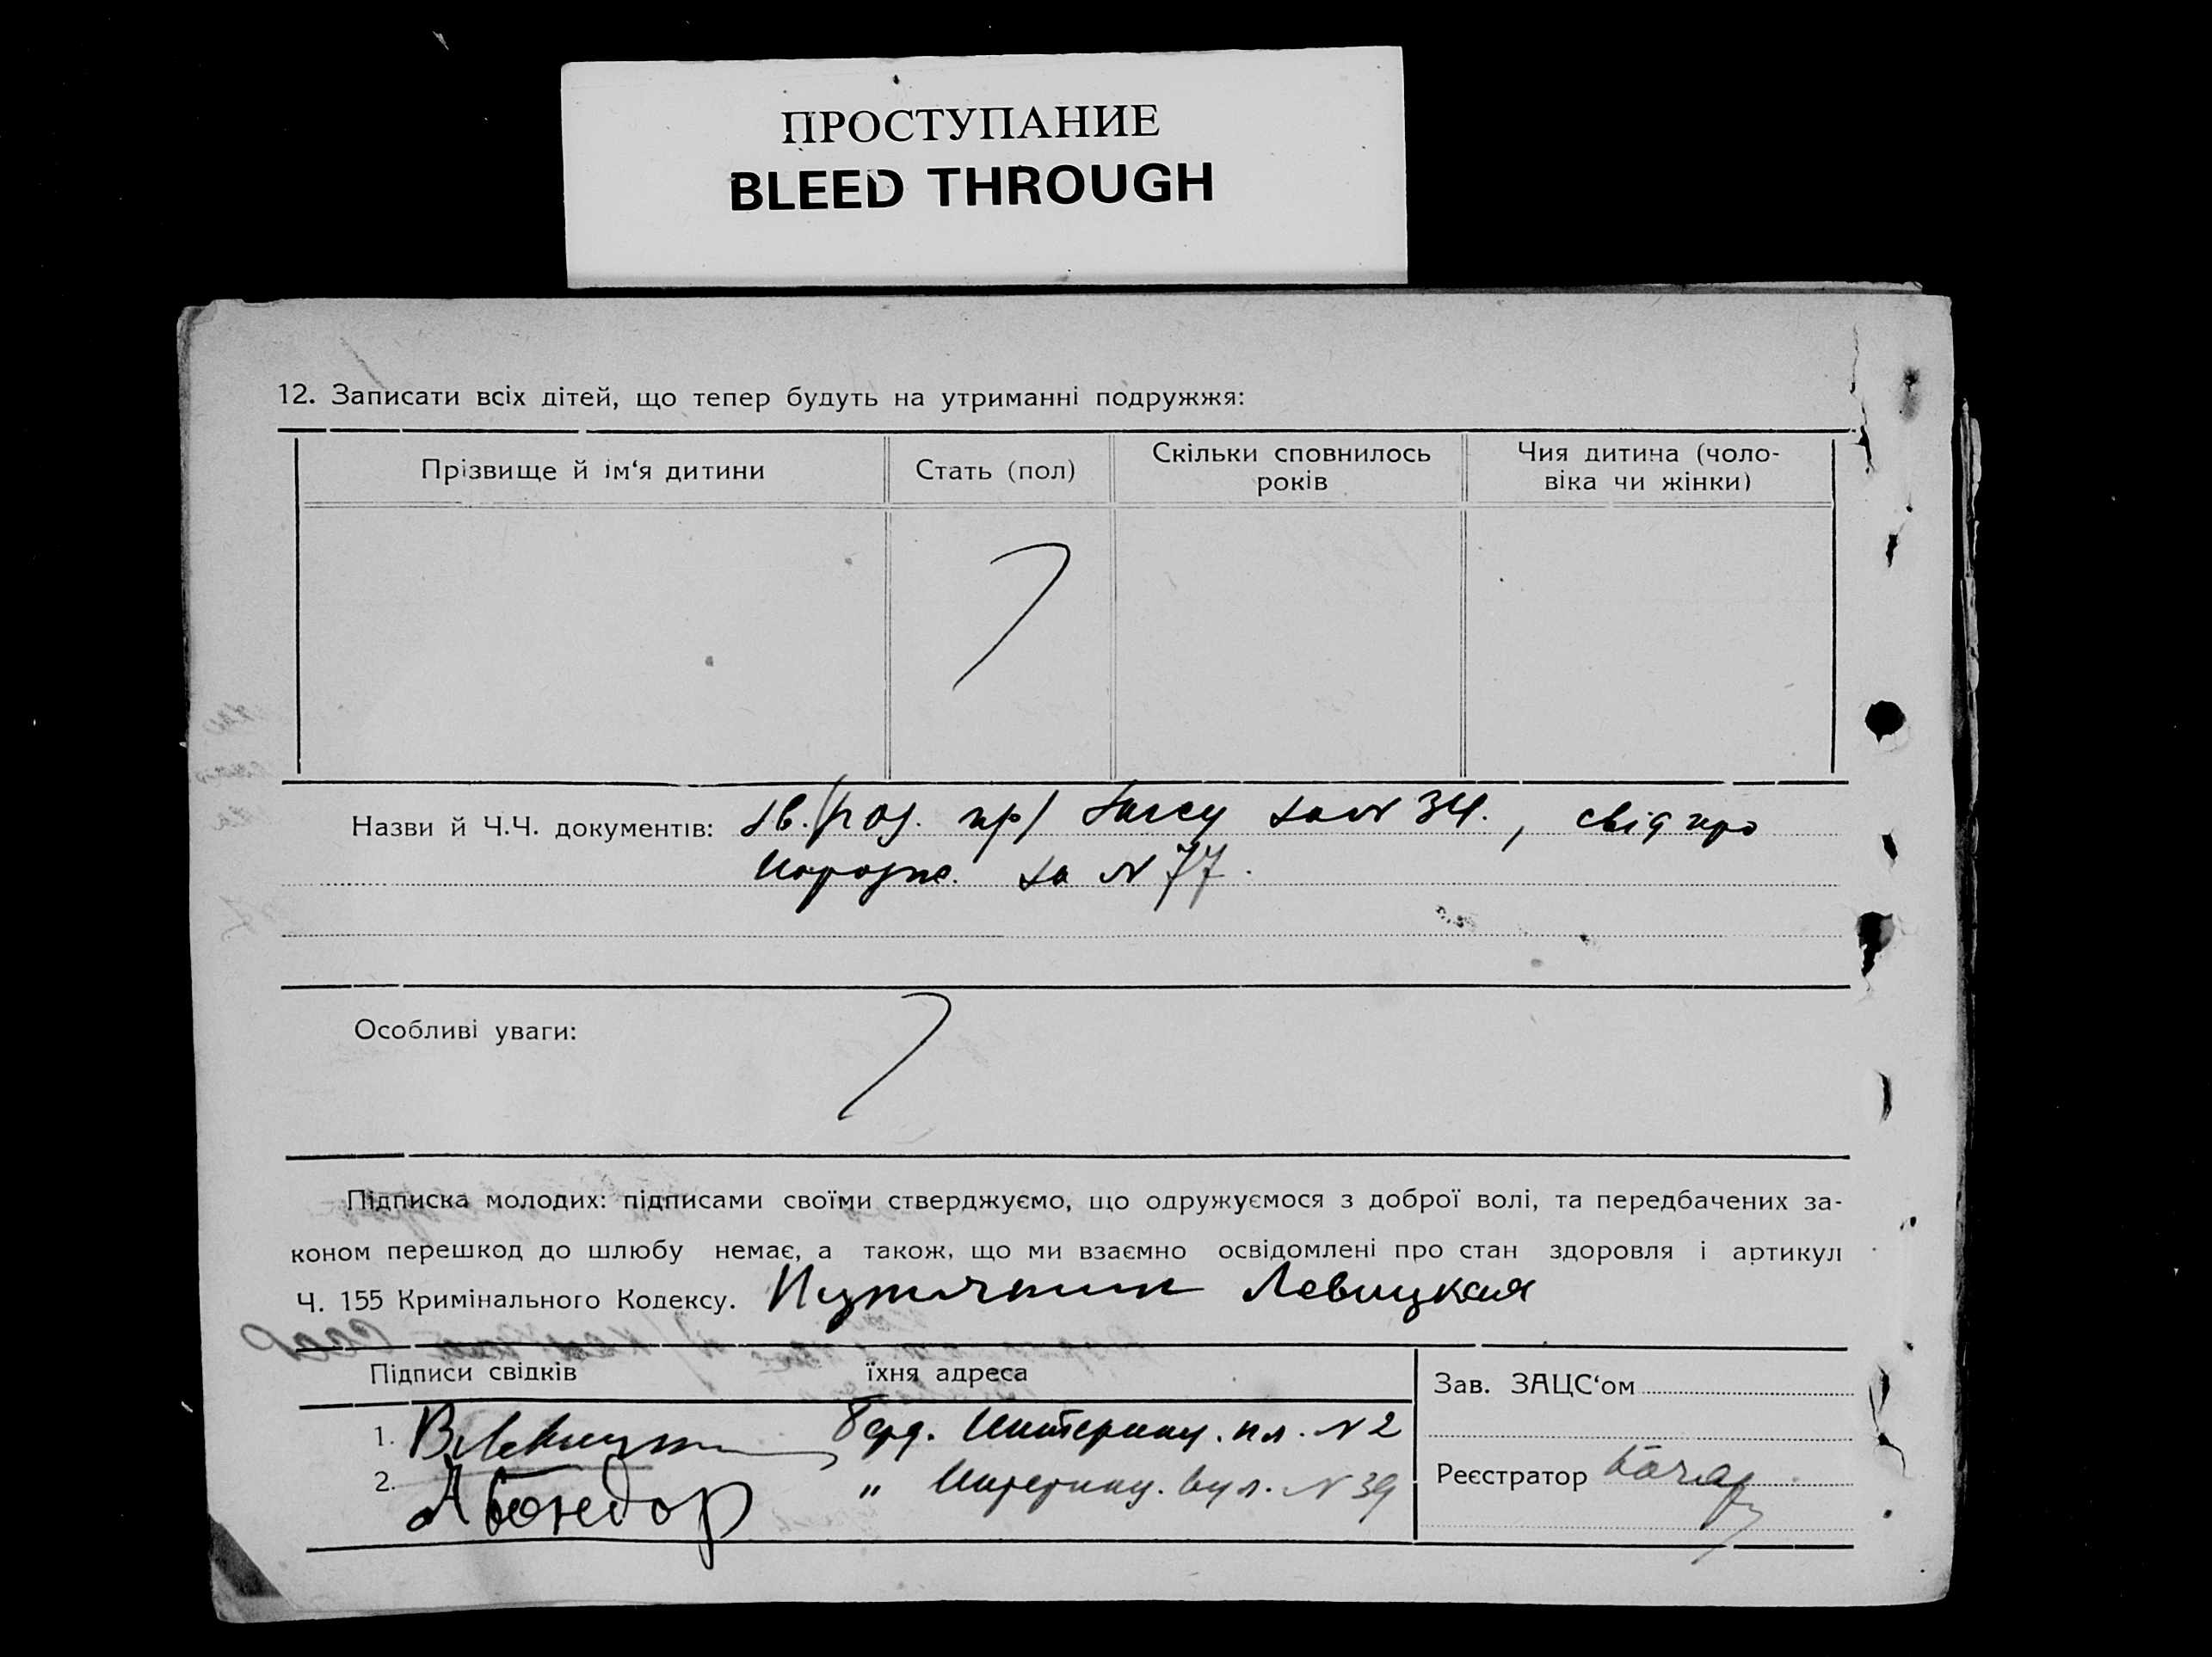 ПРОСТУПАНИЕ
BLEED THROUGH
12. Записати всіх дітей, що тепер будуть на утриманні подружжя:
Прізвище й ім‘я дитини
Стать (пол)
Скільки сповнилось
років
Чия дитина (чоло-
віка чи жінки)
Назви й Ч.Ч. документів: за № 34., свід про
за № 77.
Особливі уваги:
Підписка молодих: підписами своїми стверджуємо, що одружуємося з доброї волі, та передбачених за-
коном перешкод до шлюбу немає, а також, що ми взаємно освідомлені про стан здоровля і артикул
Ч. 155 Кримінального Кодексу. Левицкая
Підписи свідків
їхня адреса
Зав. ЗАЦС‘ом
1. пл. № 2
2. АБондор " вул. № 39
Реєстратор